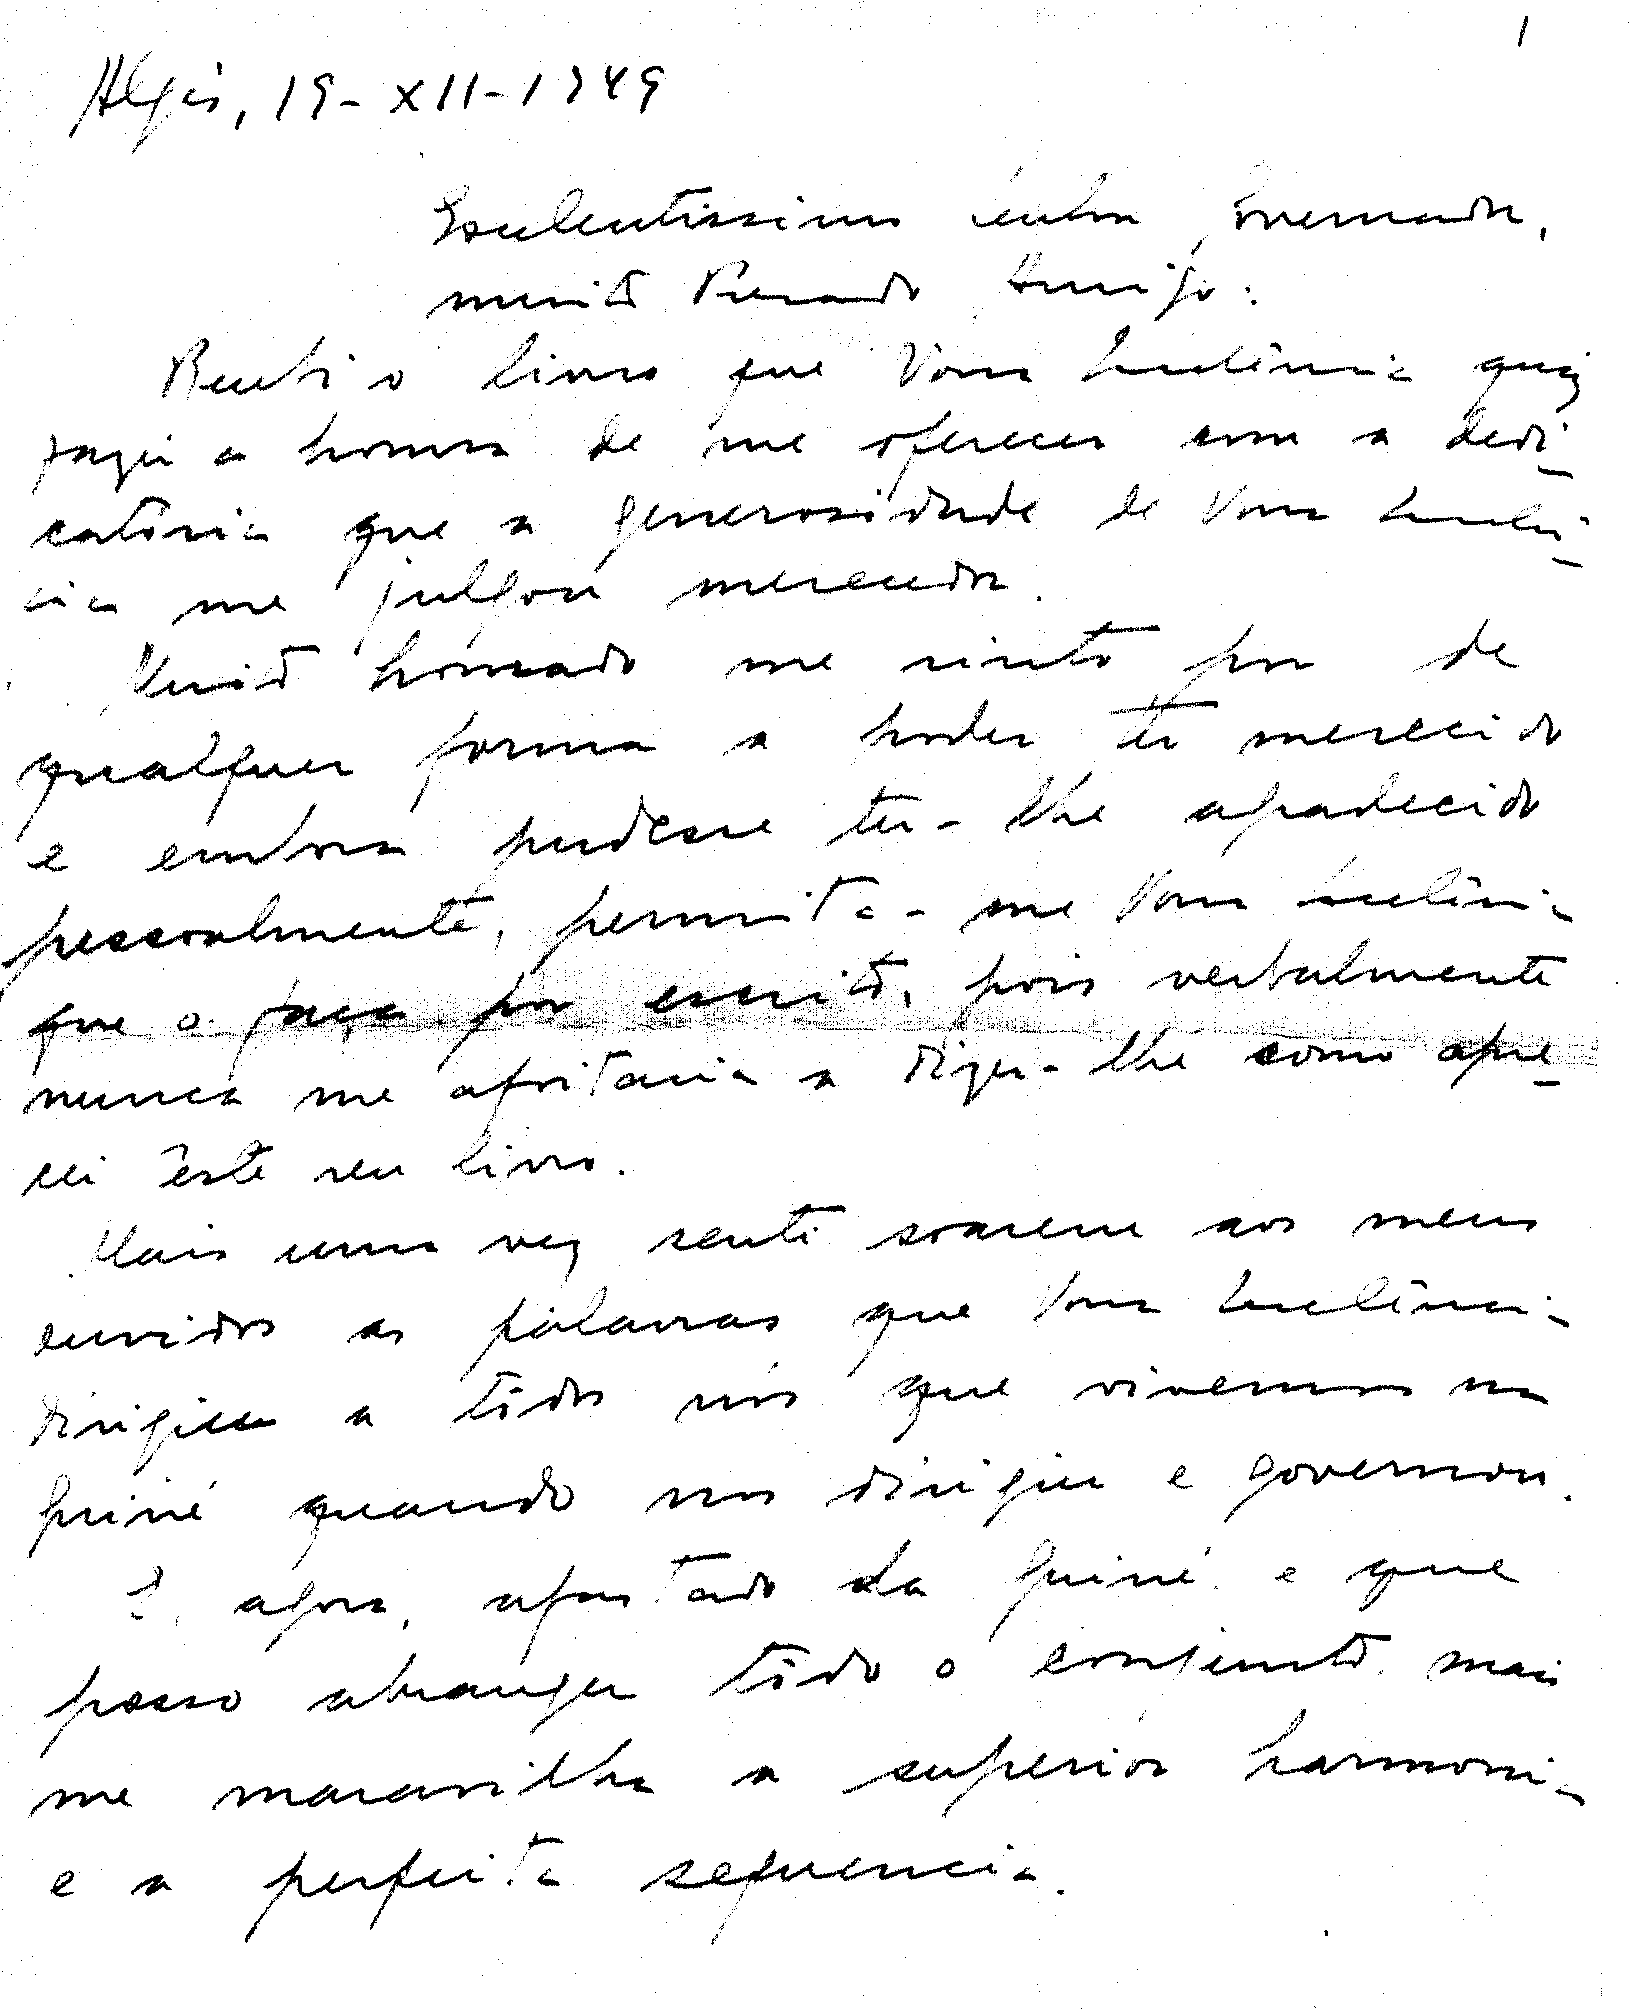 1
Algés, 19-XII-1949
Excelentissimo senhor Governador,
muito Prezado Amigo:
Recebi o livro que Vossa Excelência quiz
fazer a honra de me oferecer com a dedi-
catória que a generosidade de Vossa Excelên-
cia me julgou merecedor.
Muito honrado me sinto por de
qualquer forma a poder ter merecido
e embora pudesse ter-lhe agradecido
pessoalmente, permita-me Vossa Excelência
que o faça por escrito, pois verbalmente
nunca me afoitaria a dizer-lhe como apre-
ciei êste seu livro.
Mais uma vez senti soarem aos meus
ouvidos as palavras que Vossa Excelência
dirigiu a todos nós que vivemos na
Guiné quando nos dirigiu e governou.
E, agora, afastado da Guiné e que
posso abranger todo o conjunto mais
me maravilha a superior harmonia
e a perfeita sequencia.